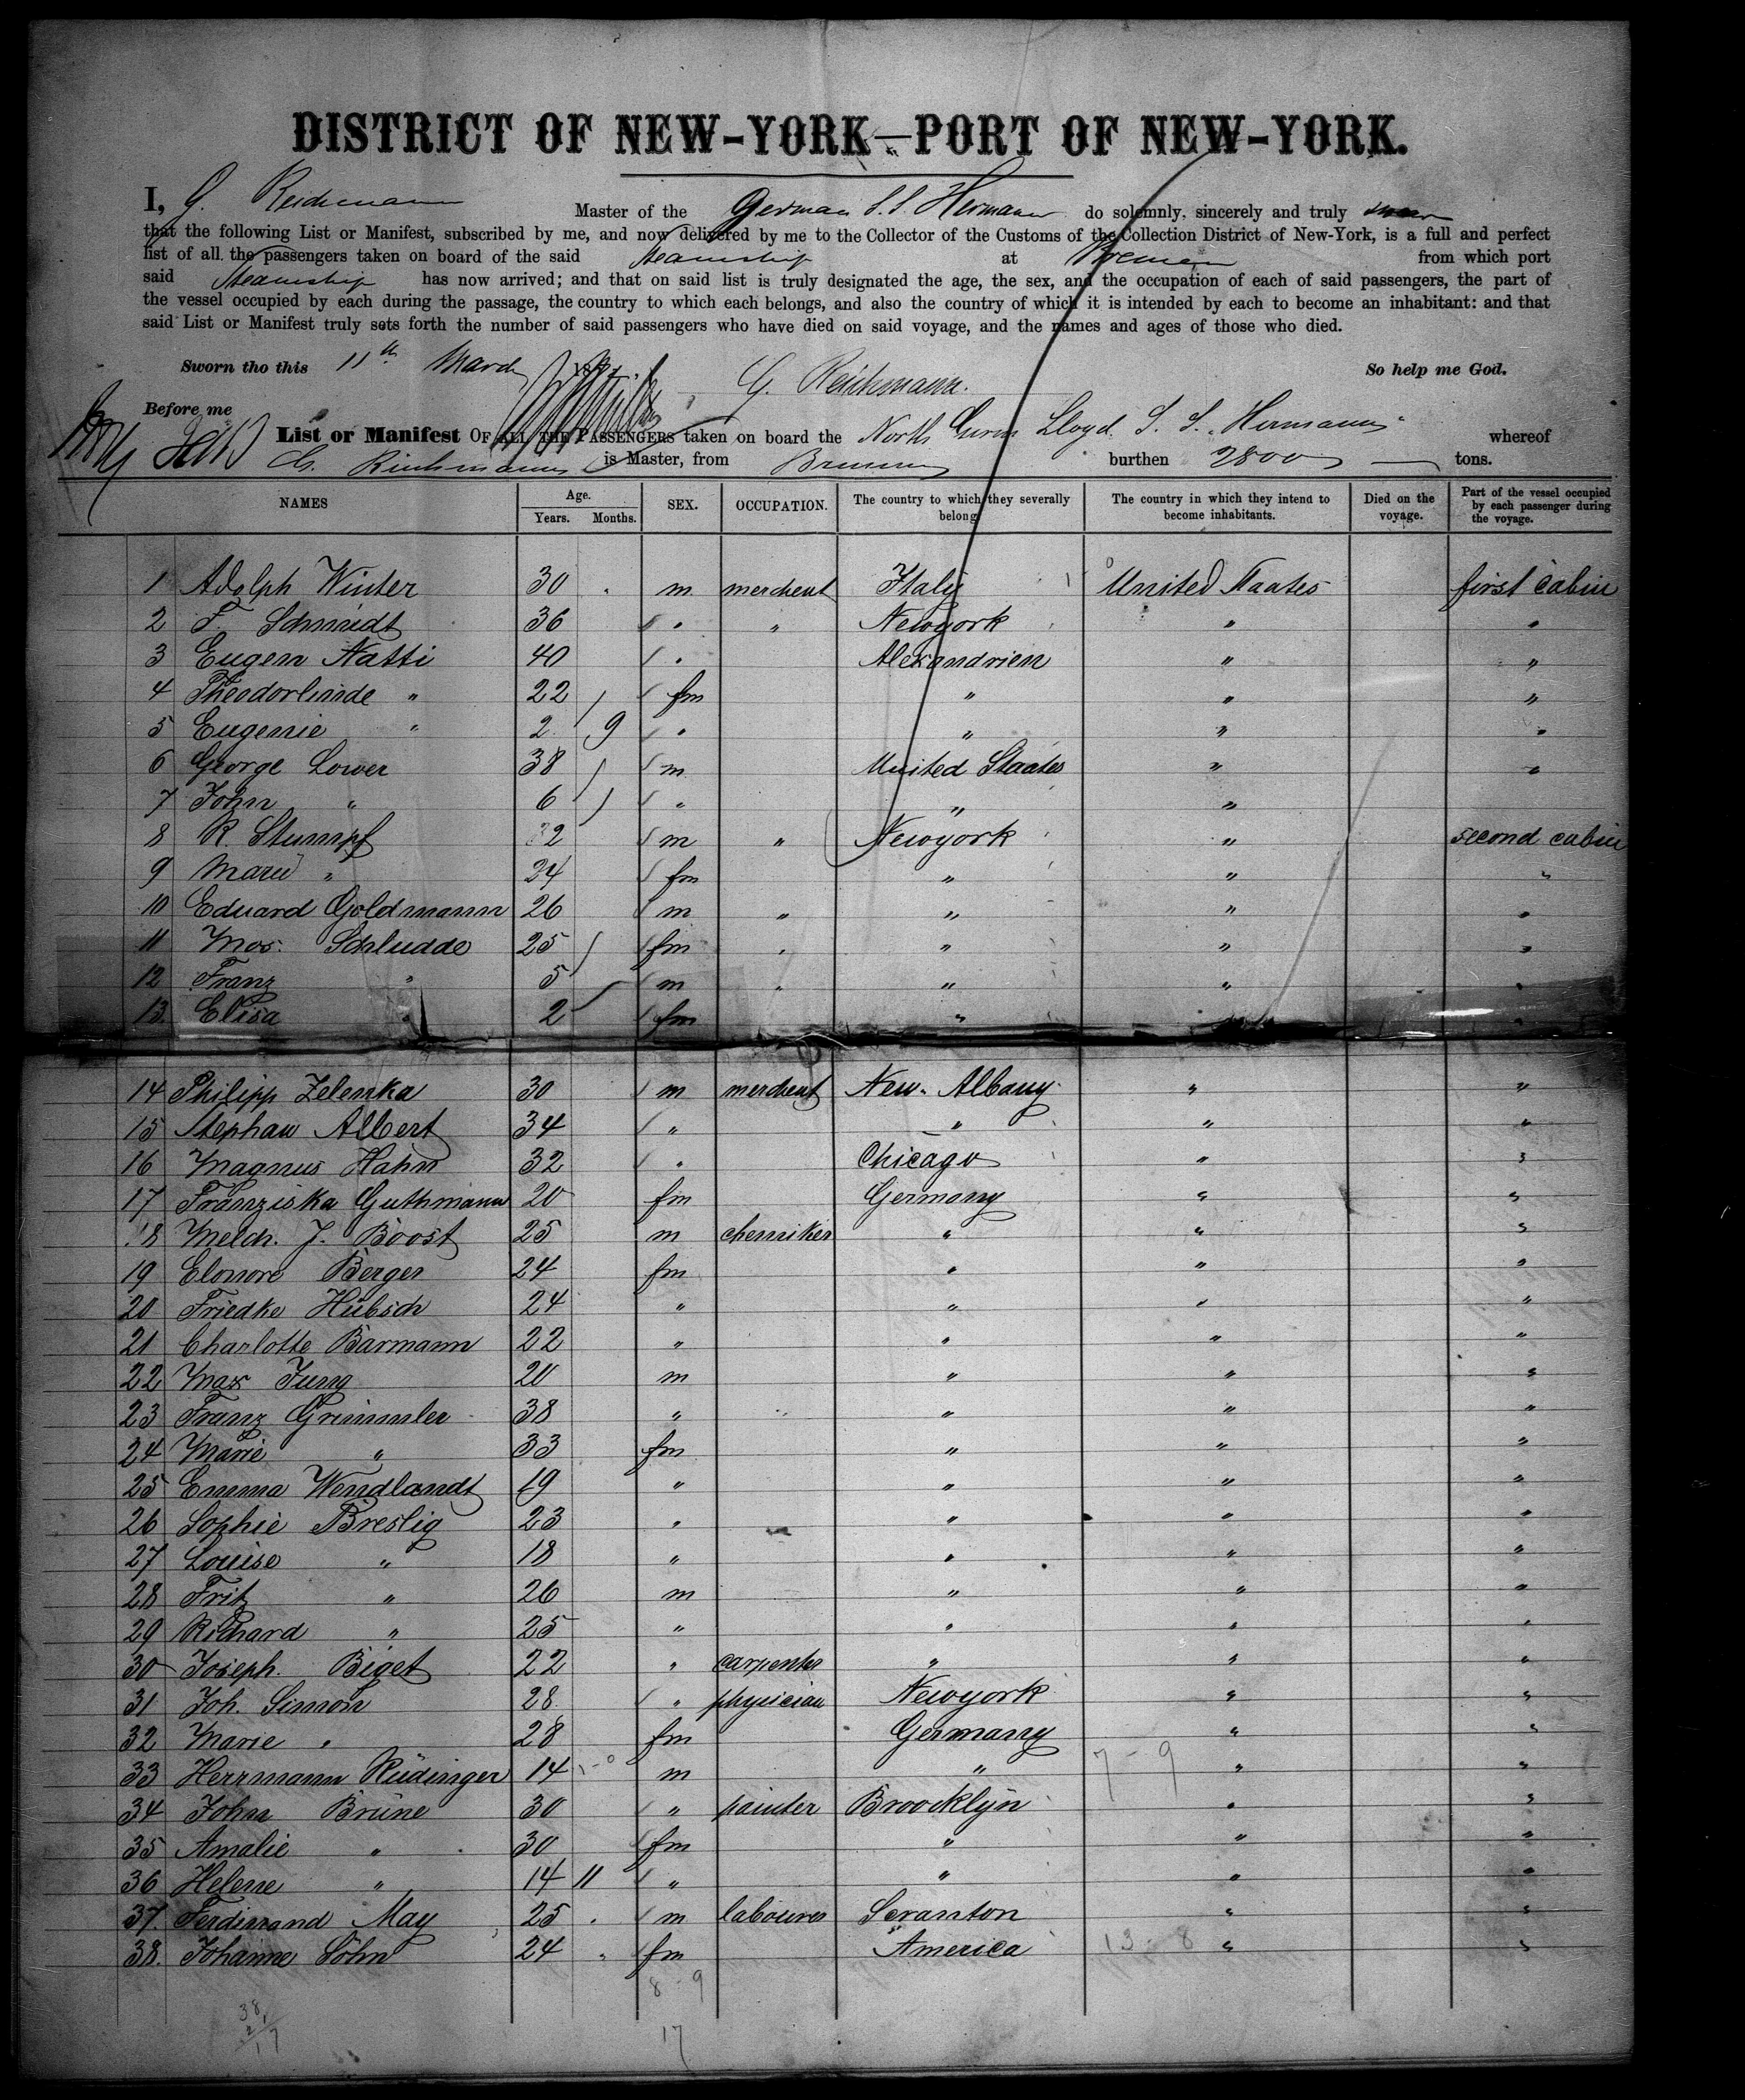 DISTRICT OF NEW-YORK—PORT OF NEW-YORK.
I, G. Reichmann Master of the German S.S. Hermann do solemnly, sincerely and truly swear
that the following List or Manifest, subscribed by me, and now delivered by me to the Collector of the Customs of the Collection District of New-York, is a full and perfect
list of all the passengers taken on board of the said Steamship at Bremen from which port
said Steamship has now arrived; and that on said list is truly designated the age, the sex, and the occupation of each of said passengers, the part of
the vessel occupied by each during the passage, the country to which each belongs, and also the country of which it is intended by each to become an inhabitant: and that
said List or Manifest truly sets forth the number of said passengers who have died on said voyage, and the names and ages of those who died.
Sworn tho this 11th March G. Reichmann. So help me God.
Before me
List or Manifest OF ALL THE PASSENGERS taken on board the North Germ Lloyd. S. S. "Hermann" whereof
G. Reichmann is Master, from Bremen burthen 2800 tons.
NAMES Age. Years. Months. SEX. OCCUPATION. The country to which they severally belong The country in which they intend to become inhabitants. Died on the voyage. Part of the vessel occupied by each passenger during the voyage.
1 Adolph Winter 30 m merchent Italy United Staates first cabin
2 F. Schmidt 36 " " Newyork " "
3 Eugen Natti 40 " Alexandrien " "
4 Theodorlinde " 22 fm " " "
5 Eugenie " 2 9 " " " "
6 George Lower 38 m United Staates " "
7 John " 6 " " "
8 R. Stumpf 32 m " Newyork " second cabin
9 Marie " 24 fm " " "
10 Eduard Goldmann 26 m " " " "
11 Mos. Schludde 25 fm " " " "
12 Franz " 5 m " " " "
13. Elisa " 2 fm "
14 Philipp Zelenka 30 m merchent New-Albany " "
15 Stephan Albert 34 " " " "
16 Magnus Hahn 32 " Chicago " "
17 Franziska Guthmann 20 fm Germany " "
18 Melch. J. Boost 25 m chemiker " " "
19 Elonore Berger 24 fm " " "
20 Friedke Hübsch 24 " " " "
21 Charlotte Barmann 22 " " " "
22 Max Jung 20 m " " "
23 Franz Grimmler 38 " " " "
24 Marie " 33 fm " " "
25 Emma Wendlandt 19 " " " "
26 Sophie Breslig 23 " " " "
27 Louise " 18 " " " "
28 Fritz " 26 m " " "
29 Richard " 25 " " " "
30 Joseph. Biget 22 " carpenter " " "
31 Joh. Simon 28 " physician Newyork " "
32 Marie " 28 fm Germany " "
33 Herrmann Rüdinger 14 m " 7-9 " "
34 John Brüne 30 " painter Broocklyn " "
35 Amalie " 30 fm " " "
36 Helene " 14 11 " " " "
37. Ferdinand May 25 m labourer Scranton " "
38. Johanne Söhn 24 fm America 13-8 " "
8-9
38
21
17
17